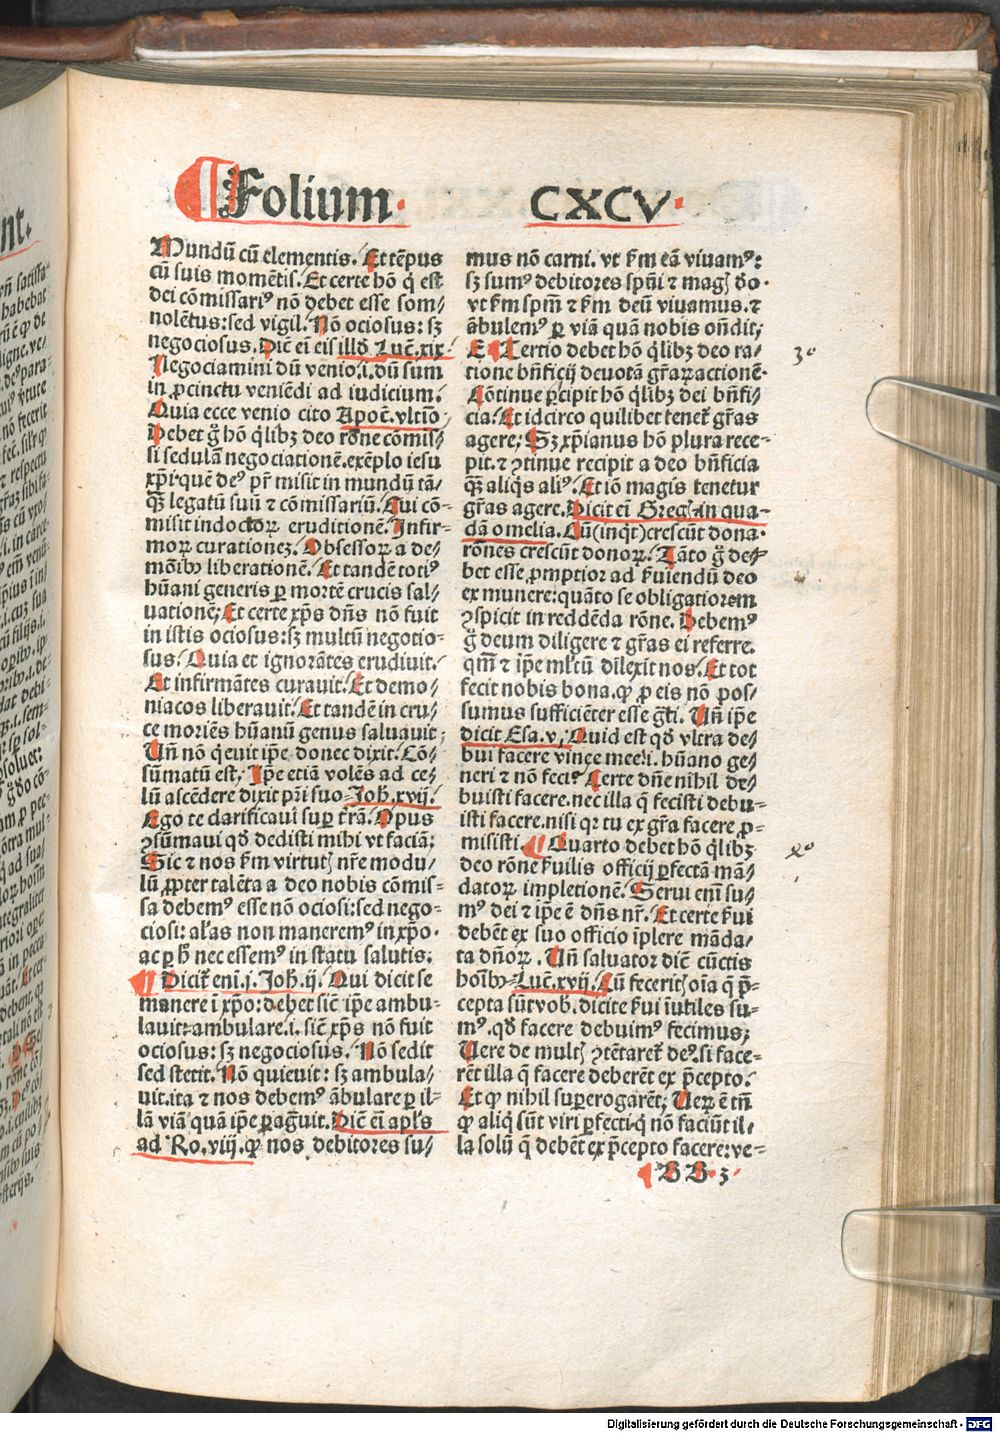 Folium CXCV
Mundū cū elementis. Et tēpus
cū suis momētis. Et certe hō q̇ est
dei cōmissariꝰ nō debet esse som/
nolētus: sed vigil. Nō ociosus: sꝫ
negociosus. Dic̄ ei eis illd̄ Luc̄. xix
Negociamini dū venio. i. dū sum
in ꝓcinctu veniēdi ad iudicium.
Quia ecce venio cito Apoc̄. vltīo
Debet g̊ hō q̇libꝫ deo rōne cōmis/
si sedulā negociationē. exēplo iesu
xp̄i quē deꝰ pr̄ misit in mundū tā/
q̄ꝫ legatū suū ⁊ cōmissariū. Qui cō-
misit indoctoꝝ eruditionē. Infir-
moꝝ curationeꝫ. Obsessoꝝ a de/
mōibꝰ liberationē. Et tandē totiꝰ
hūani generis ꝑ mortē crucis sal/
uationē; Et certe xp̄s dn̄s nō fuit
in istis ociosus: sꝫ multū negotio-
sus. Quia et ignorātes erudiuit.
Et infirmātes curauit. Et demo/
niacos liberauit. Et tandē in cru/
ce moriēs hūanū genus saluauit;
Un̄ nō q̇euit ip̄e donec dixit. Cō/
sūmatū est. Ip̄e etiā volēs ad ce/
lū ascēdere dixit pr̄i suo Joh̄. xvij.
Ego te clarificaui suꝑ tr̄ā. Opus
ꝯsūmaui qd̄ dedisti mihi vt faciā:
Sic ⁊ nos ẜm virtutꝭ nr̄e modu/
lū ꝓpter talēta a deo nobis cōmis-
sa debemꝰ esse nō ociosi: sed nego-
ciosi: al̄as non manerem​ꝰ in xp̄o.
ac ꝑ h̄ nec essemꝰ in statu salutis.
¶ Dicit̄ eni. j. Joh̄. ij. Qui dicit se
manere ī xp̄o: debet sic̄ ip̄e ambu-
lauit ⁊ ambulare. i. sic̄ xp̄s nō fuit
ociosus: sꝫ negociosus. Nō sedit
sed stetit. Nō quieuit: sꝫ ambula/
uit. ita ⁊ nos debemꝰ ābulare ꝑ il-
lā viā qua ip̄e ꝑagͣuit. Dic̄ ei apl̄s
ad Ro. viij. ꝙ nos debitores su/
mus nō carni. vt ẜm eā viuamꝰ:
sꝫ sumꝰ debitores spn̄i ⁊ magꝭ do.
vt ẜm spm̄ ⁊ ẜm deū viuamus. ⁊
ābulemꝰ ꝑ viā quā nobis on̄dit;
Et Tertio debet hō q̇libꝫ deo ra/
tione bn̄ficij deuotā gr̄aꝝ actionē.
Cōtinue ꝑcipit hō q̇libꝫ dei bn̄fi/
cia. Et idcirco quilibet tenet̄ gr̄as
agere; Sꝫ xp̄ianus hō plura rece-
pit. ⁊ ꝯtinue recipit a deo bn̄ficia
q̄ꝫ aliqͥs aliꝰ. Et iō magis tenetur
gr̄as agere. Dicit ei Greg̓. in qua-
dā omelia. Cū (inq̇t) crescūt dona.
rōnes crescūt donoꝝ. Tāto g̊ de/
bet esse ꝓmptior ad ẜuiendū deo
ex munere: quāto se obligatiorem
ꝯspicit in reddēda rōne. Debemꝰ
g̊ deum diligere ⁊ gr̄as ei referre.
qm̄ ⁊ ip̄e ml̄tū dilexit nos. Et tot
fecit nobis bona. ꝙ ꝓ eis nō pos/
sumus sufficiēter esse gͣti. Un̄ ip̄e
dicit Esa. v. Quid est qd̄ vltra de/
bui facere vinee mee. i. hūano ge/
neri ⁊ nō feci? Certe dn̄e nihil de/
buisti facere. nec illa q̄ fecisti debu-
isti facere. nisi qꝛ tu ex gr̄a facere ꝓ-
misisti. ¶ Quarto debet hō q̇libꝫ
deo rōne ẜuilis officij ꝑfectā mā/
datoꝝ impletionē. Serui em̄ su/
mꝰ dei ⁊ ip̄e ē dn̄s nr̄. Et certe ẜui
debēt ex suo officio īplere māda/
ta dn̄oꝝ. Un̄ saluator dic̄ cūctis
hoībꝰ Luc̄. xvij. Cū feceritꝭ oīa q̄ p̄-
cepta sūt vob̄. dicite ẜui iūtiles su-
mꝰ. qd̄ facere debuimꝰ fecimus;
Uere de multꝭ ꝯtētaret̄ deꝰ. si face-
rēt illa q̄ facere deberēt ex p̄cepto.
Et ꝙ nihil suꝑerogarēt; Ueꝝ ē tn̄
ꝙ aliq̇ sūt viri ꝑfecti. q̇ nō faciūt il/
la solū q̄ debēt ex p̄cepto facere: ve-
BB 3
3º
4º